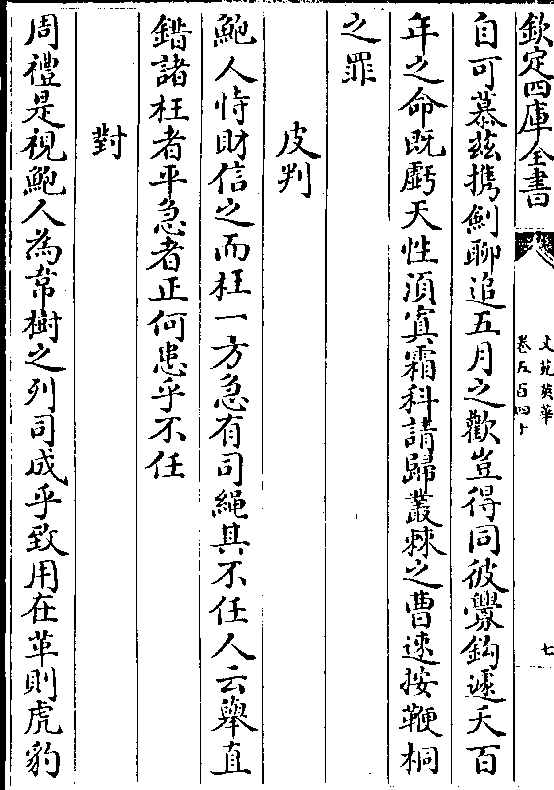 欽定四庫全書
文苑英華
卷五百四十
七
自可慕兹携劍聊追五月之歡豈得同彼釁鈎遽夭百
年之命既虧天性湏寘霜科請歸叢棘之曹速按鞭桐
之罪
皮判
鮑人恃財信之而枉一方急有司繩其不任人云舉直
錯諸枉者平急者正何患乎不任
對
周禮是視鮑人為常樹之列司成乎致用在革則虎豹